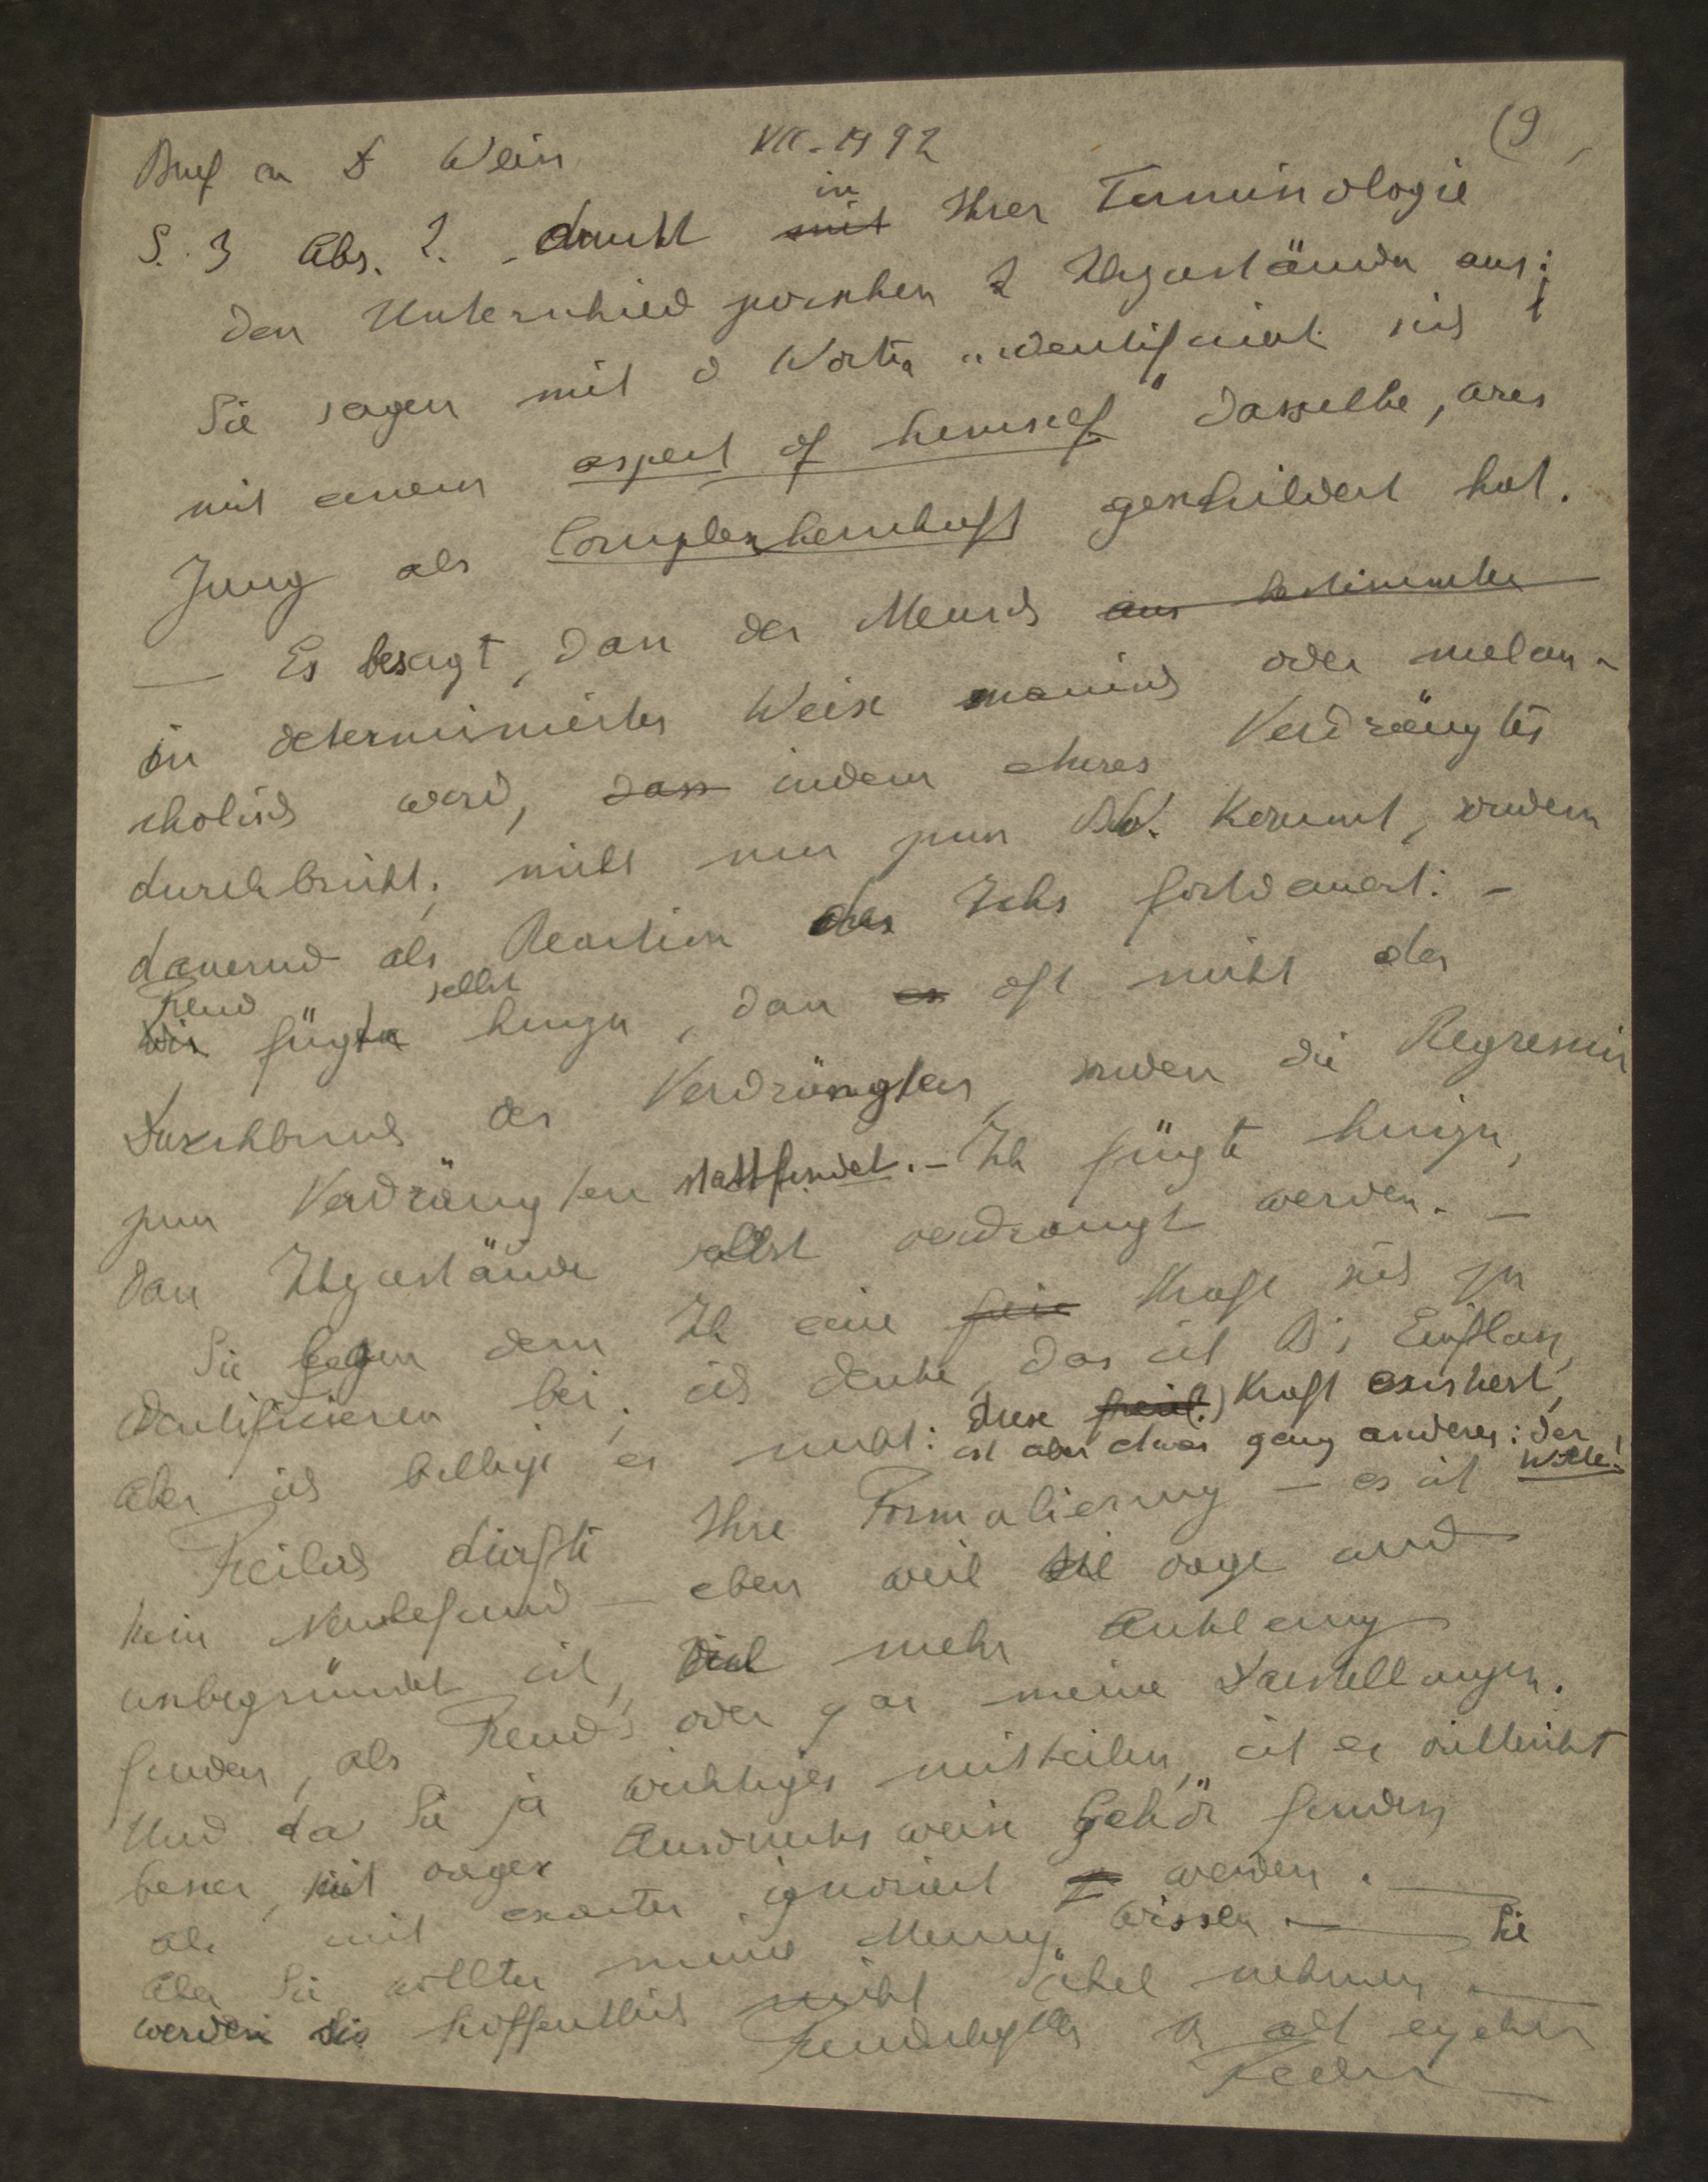 Brief an D Wein VII. 1942 (9
S. 3 Abs. 2. - druckt mit in Ihrer Terminologie
den Unterschied zwischen 2 Ichzuständen aus;
Sie sagen mit d Worten "identificiert sich
mit einem aspect of himself" dasselbe, was
Jung als Complexherrschaft geschildert hat.
— Es besagt, dass der Mensch aus bestimmter
in determinierter Weise manisch oder melan-
cholisch wird, dass indem etwas Verdrängtes
durchbricht, nicht nur zum Bw. kommt, sondern
dauernd als Reaction des Ichs fortdauert: -
Freud selbst
wir fügte hinzu, dass es oft nicht der
Durchbruch des Verdrängten, sondern die Regression
zum Verdrängten stattfindet. - Ich fügte hinzu,
dass Ichzustände selbst verdrängt werden. -
Sie legen dem Ich eine freie Kraft sich zu
identificieren bei; ich denke, das ist B's Einfluss,
aber ich billige es nicht: diese freie Kraft existiert,
ist aber etwas ganz anderes: der Wille!
Freilich dürfte Ihre Formulierung - es ist
kein Neubefund — eben weil sie vage und
unbegründet ist, viel mehr Anklang
finden, als Freud's oder gar meine Darstellungen.
Und da Sie ja wichtiges mitteilen, ist es vielleicht
besser, mit vager Ausdrucksweise Gehör finden
als mit exacter ignoriert z werden. —
Aber Sie wollten meine Meinung wissen. — Sie
werden sie hoffentlich nicht übel nehmen. —
Freundschaftlich Ihr alt ergebener
Federn —